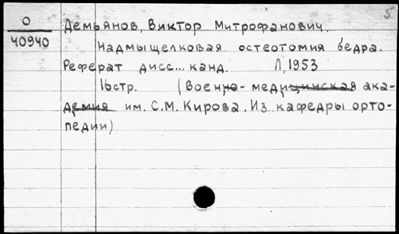 О Демьянов, Виктор Митрофанович. 5
40940 Надмыщелковая остеотомия бедра.
Реферат дисс... канд. Л, 1953
16стр. (Военно-медицинская ака-
демия им. С.М. Кирова. Из кафедры орто-
педии)